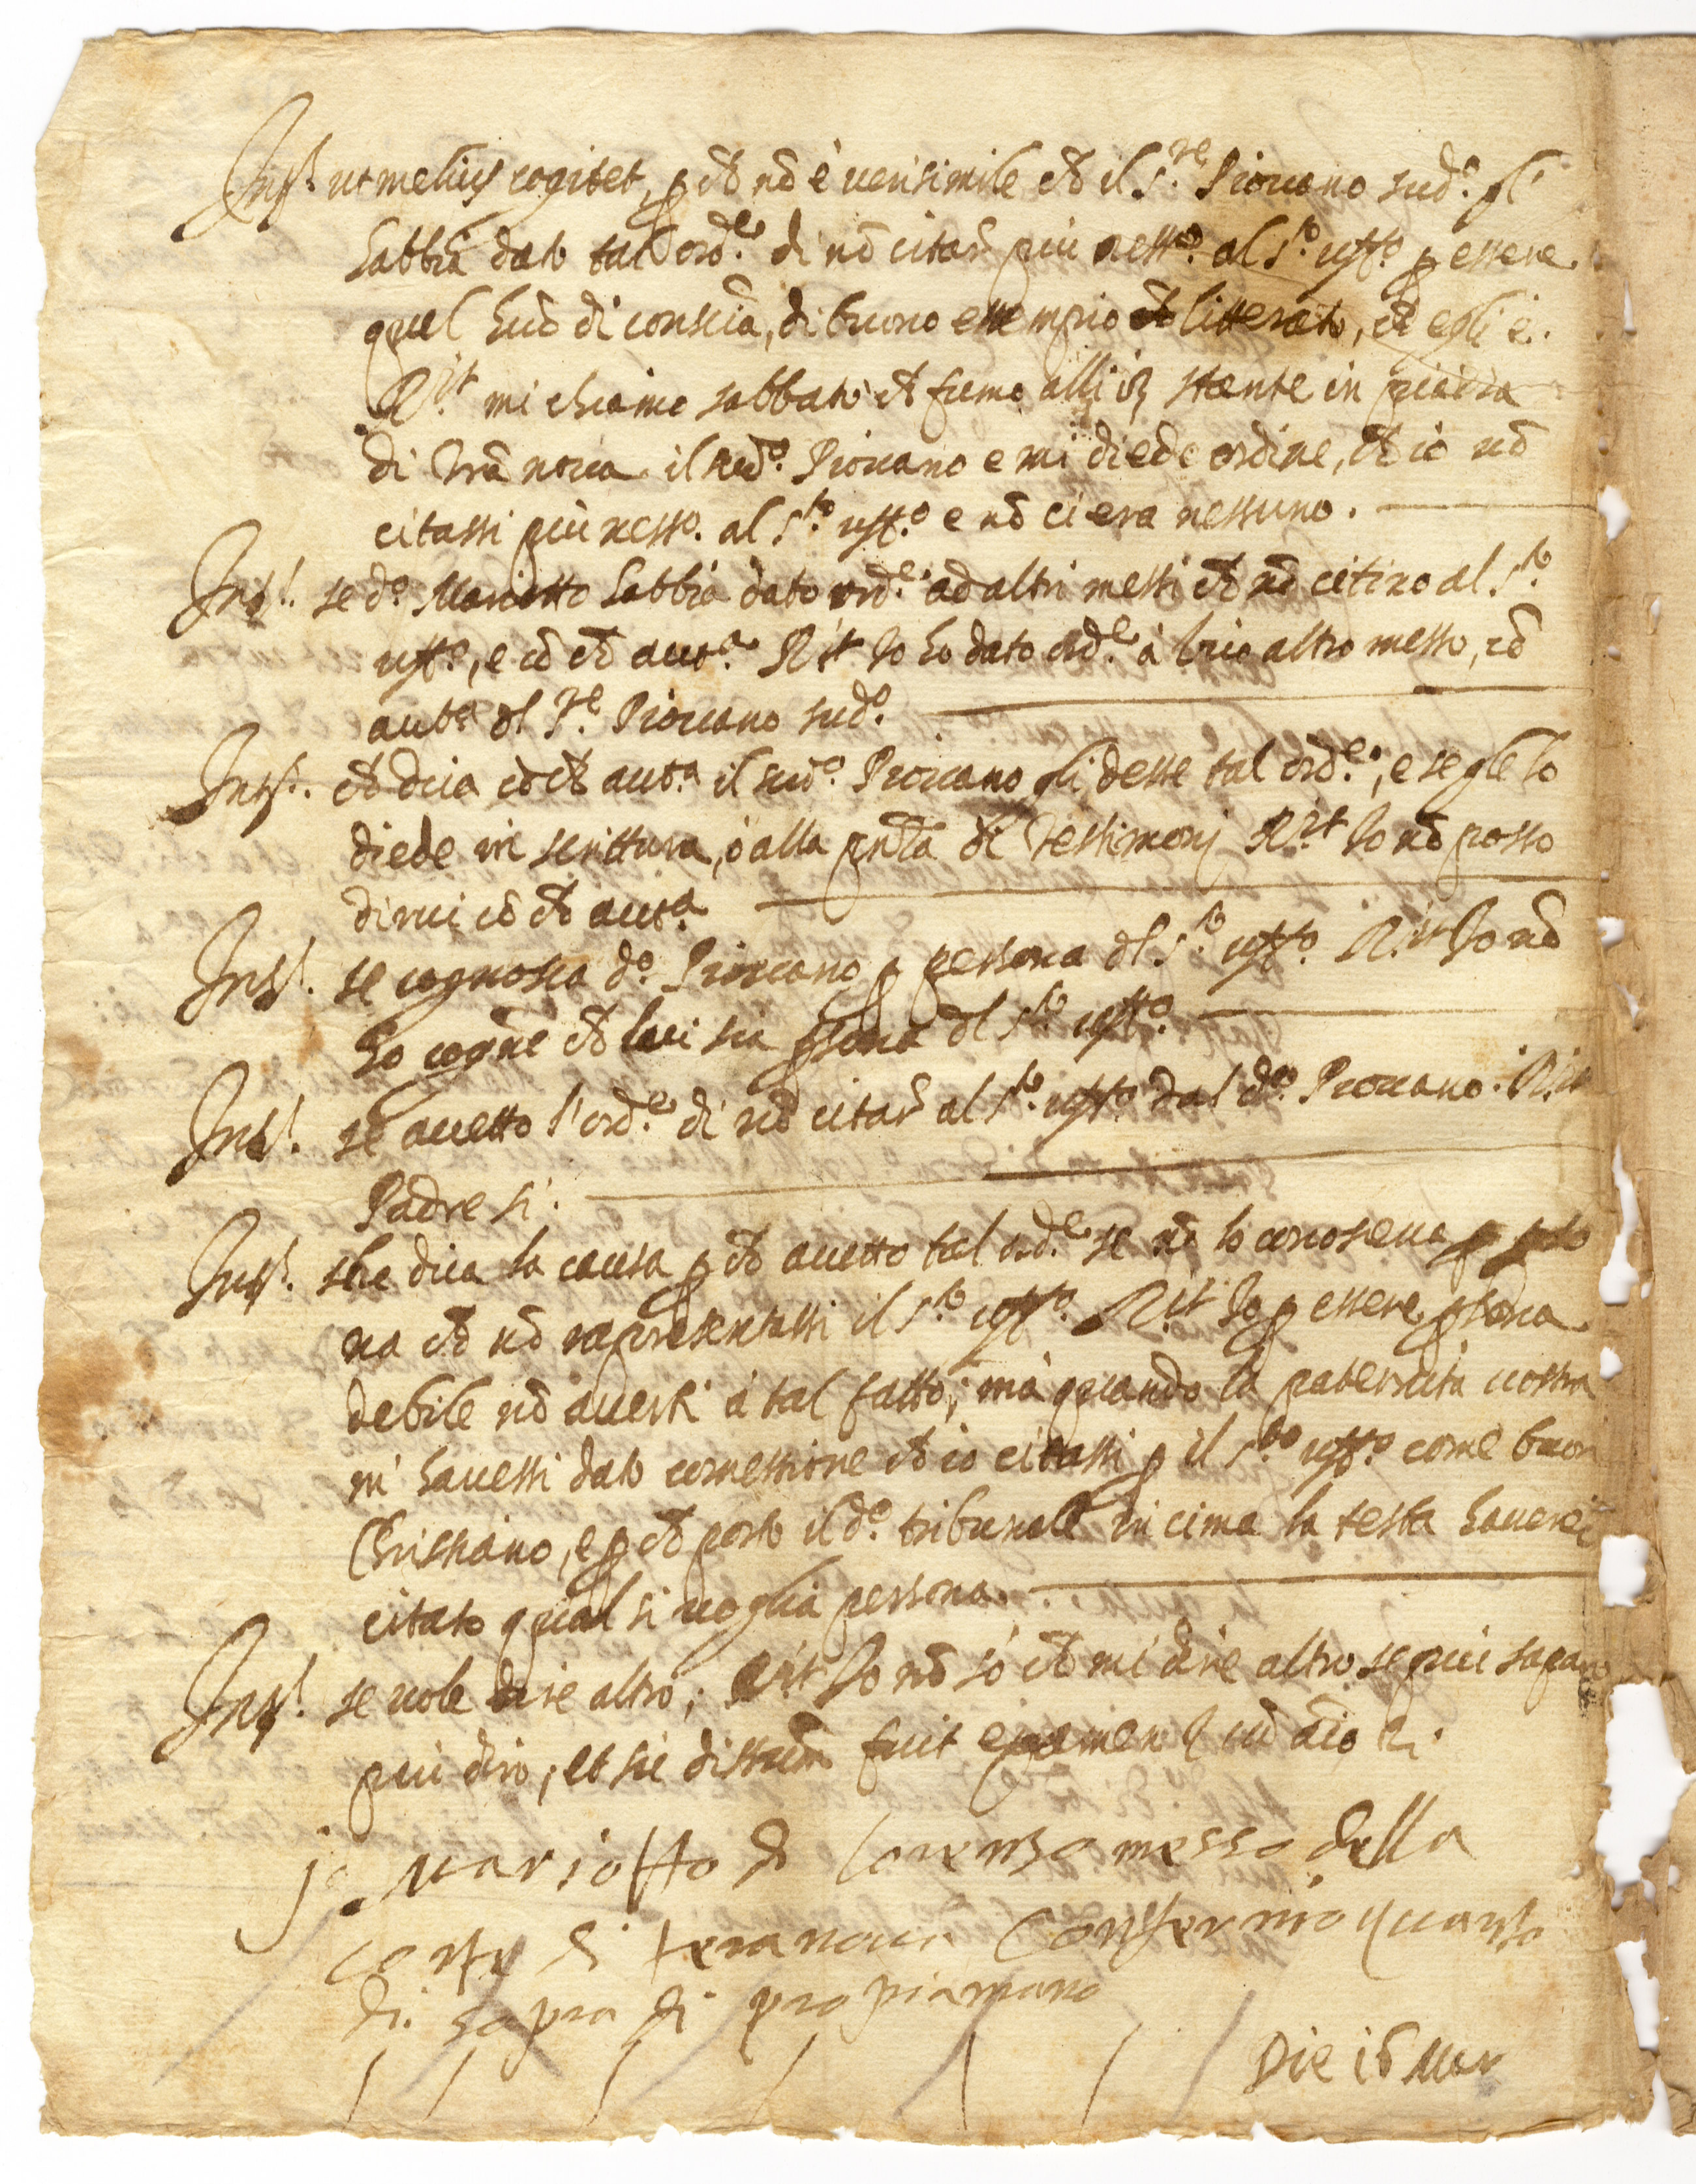 Int.s ut melius cogitet, p ch nõ è uerisimile ch il S.re Piouano sud.o gl'
habbia dato tal ord.e di nõ citar più ness.o al S.o uff.o p essere
quel huõ di conscia, di buono essempio et litterato, ch egli è.
R.it mi chiamò sabbato ch fumo alli 13 stante in piazza
di Terrã noua il sud.o Piouano e mi diede ordine, ch io nõ
citassi più ness.o al S.to uff.o e nõ ci era nessuno.
Int.s se d.o Mariotto habbia dato ord.e ad altri messi ch nõ citino al S.to
uff.o, e cõ ch aut.a R.it Io ho dato ord.e à lucio altro messo, cõ
aut.a dl S.re Piouano sud.o
Int.s ch dica cõ ch aut.a il sud.o Piouano gli desse tal ord.e, e se glelo
diede in scrittura, ò alla pñta di Testimonj R.it Io nõ posso
dirui cõ ch aut.a
Int.s se cognosca d.o Piouano p persona dl S.to uff.o R.it Io nõ
ho cogne ch lui sia psona dl S.to uff.o
Int.s se accetto l'ord.e di nõ citar al S.to uff.o dal d.o Piouano. R.it
Padre si.
Int.s che dica la causa p ch accetto tal ord.e se nõ lo conosceua p pso
na ch nõ rapresentassi il S.to uff.o R.it Io p essere psona
debile nõ auerti à tal fatto; mà quando la paternità uostra
mi hauessi dato comessione ch io citassi p il S.to uff.o come buon
Christiano, e p ch porto il d.o tribunale in cima la testa hauerei
citato qual si uoglia persona.
Int.s se uole dire altro; R.it Io nõ sò ch mi dire altro se più sapro
più dirò; et sic dissum fuit examen cũ aio
jo Mariotto di Lorenzo messo della
Corte di teranoua Confermo quanto
di sopra di propia mano
Die 16 Mar